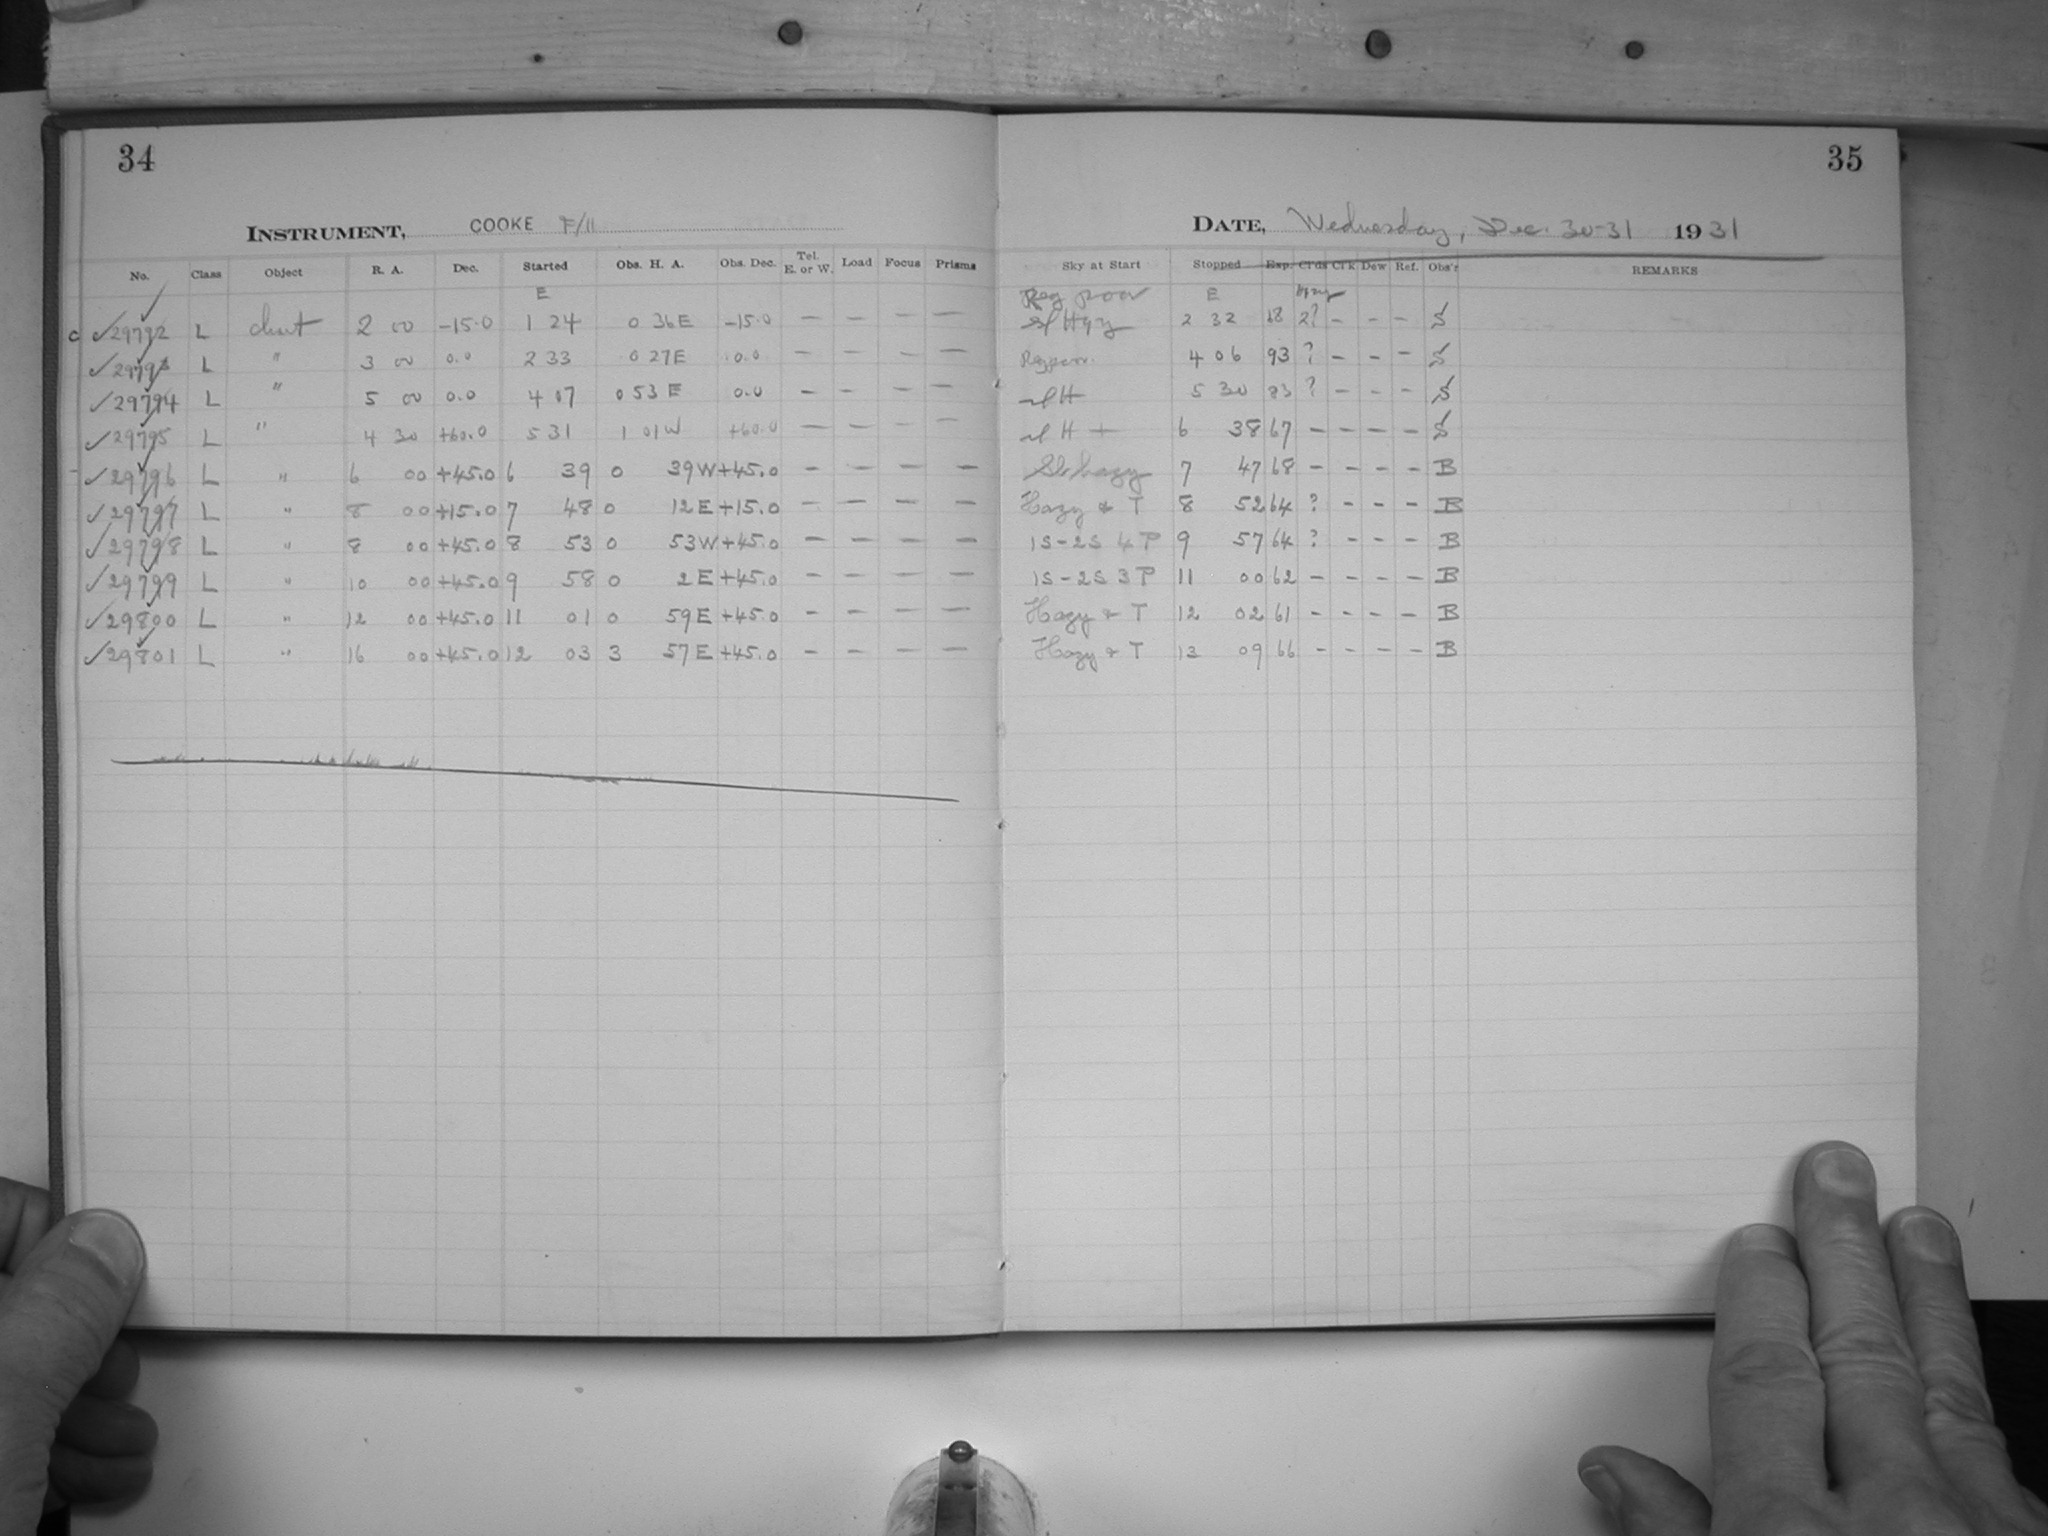 34
35
INSTRUMENT, COOKE F/11
DATE, Wednesday, Dec. 30-31 1931
No. Class Object R. A. Dec. Started Obs. H. A. Obs. Dec. Tel. E. or W. Load Focus Prisms Sky at Start Stopped Exp. Cl'ds Cl'k Dew Ref. Obs'r REMARKS
E Reg poor E Hazy
c ✓29792 L chart 2 00 -15.0 1 24 0 36E -15.0 — — — — sl Hazy 2 32 68 2? - - - S
✓29793 L " 3 00 0.0 2 33 0 27E 0.0 — — — — Reg poor 4 06 93 ? - - - S
✓29794 L " 5 00 0.0 4 07 0 53E 0.0 — — — — sl H 5 30 83 ? - - - S
✓29795 L " 4 30 +60.0 5 31 1 01W +60.0 — — — — sl H + 6 38 67 - - - - S
✓29796 L " 6 00 +45.0 6 39 0 39W +45.0 — — — — Sl hazy 7 47 68 - - - - B
✓29797 L " 8 00 +15.0 7 48 0 12E +15.0 — — — — Hazy & T 8 52 64 ? - - - B
✓29798 L " 8 00 +45.0 8 53 0 53W +45.0 — — — — 1S-2S 4P 9 57 64 ? - - - B
✓29799 L " 10 00 +45.0 9 58 0 2E +45.0 — — — — 1S-2S 3P 11 00 62 - - - - B
✓29800 L " 12 00 +45.0 11 01 0 59E +45.0 — — — — Hazy & T 12 02 61 - - - - B
✓29801 L " 16 00 +45.0 12 03 3 57E +45.0 — — — — Hazy & T 13 09 66 - - - - B